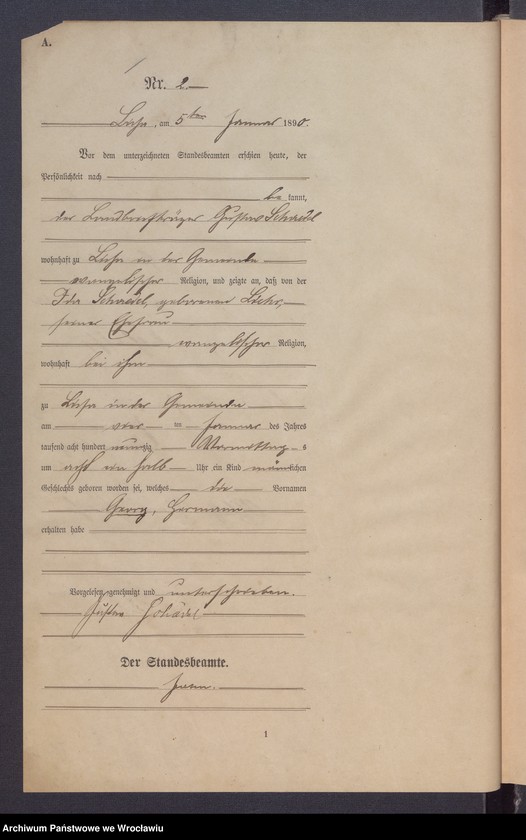 A.
Nr. 2.
am 5ten Januar 1890.
Vor dem unterzeichneten Standesbeamten erschien heute, der
Persönlichkeit nach
be kannt,
der Gustav Schädel
wohnhaft zu in der Gemeinde
evangelischer Religion, und zeigte an, daß von der
Ida Schädel, geborenen
seiner Ehefrau
evangelischer Religion,
wohnhaft bei ihm
zu in der Gemeinde
am vier ten Januar des Jahres
tausend acht hundert neunzig Vormittags
um acht ein halb Uhr ein Kind männlichen
Geschlechts geboren worden sei, welches die Vornamen
Georg, Hermann
erhalten habe
Vorgelesen, genehmigt und unterschrieben.
Gustav Schädel
Der Standesbeamte.
1
Archiwum Państwowe we Wrocławiu